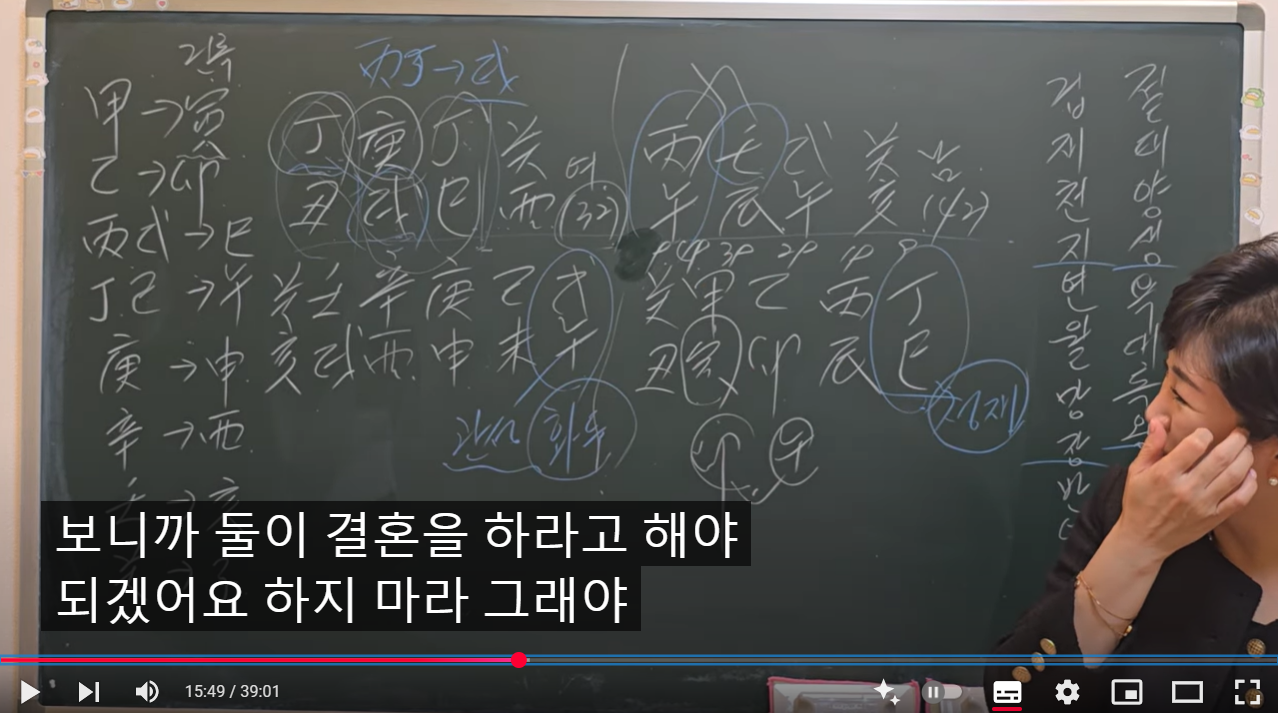 건록
甲→寅
乙→卯
丙戊→巳
丁己→午
庚→申
辛→酉
丙子→戌
丁 庚 丁 癸 여
丑 戌 巳 酉 32
癸 壬 辛 庚 己 戊
亥 戌 酉 申 未 午
관성
丙 壬 戊 癸 남
午 辰 午 亥 (42)
癸 甲 乙 丙 丁
丑 寅 卯 辰 巳
卯 午
겁재천지변월망장반
절태양생욕대록왕
보니까 둘이 결혼을 하라고 해야
되겠어요 하지 마라 그래야
15:49 / 39:01